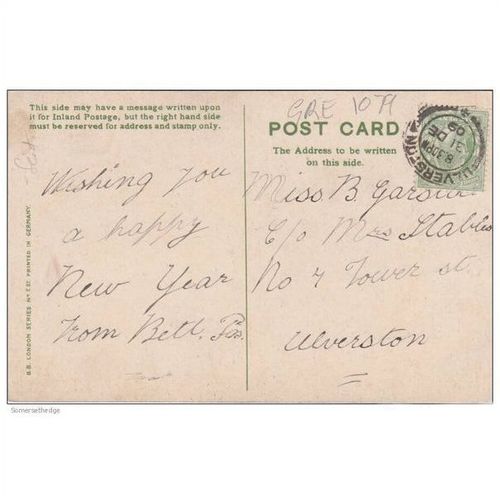 This side may have a message written upon
it for Inland Postage, but the right hand side
must be reserved for address and stamp only.
Wishing you
a happy
New Year
from Bell.
B.B. LONDON SERIES PRINTED IN GERMANY.
GRE 10
POST CARD
The Address to be written
on this side.
Miss B. Garstin
c/o Mrs Stables
No 7 Tower st.
Ulverston
ULVERSTON
8.30PM
31 DE
09
Somersethedge